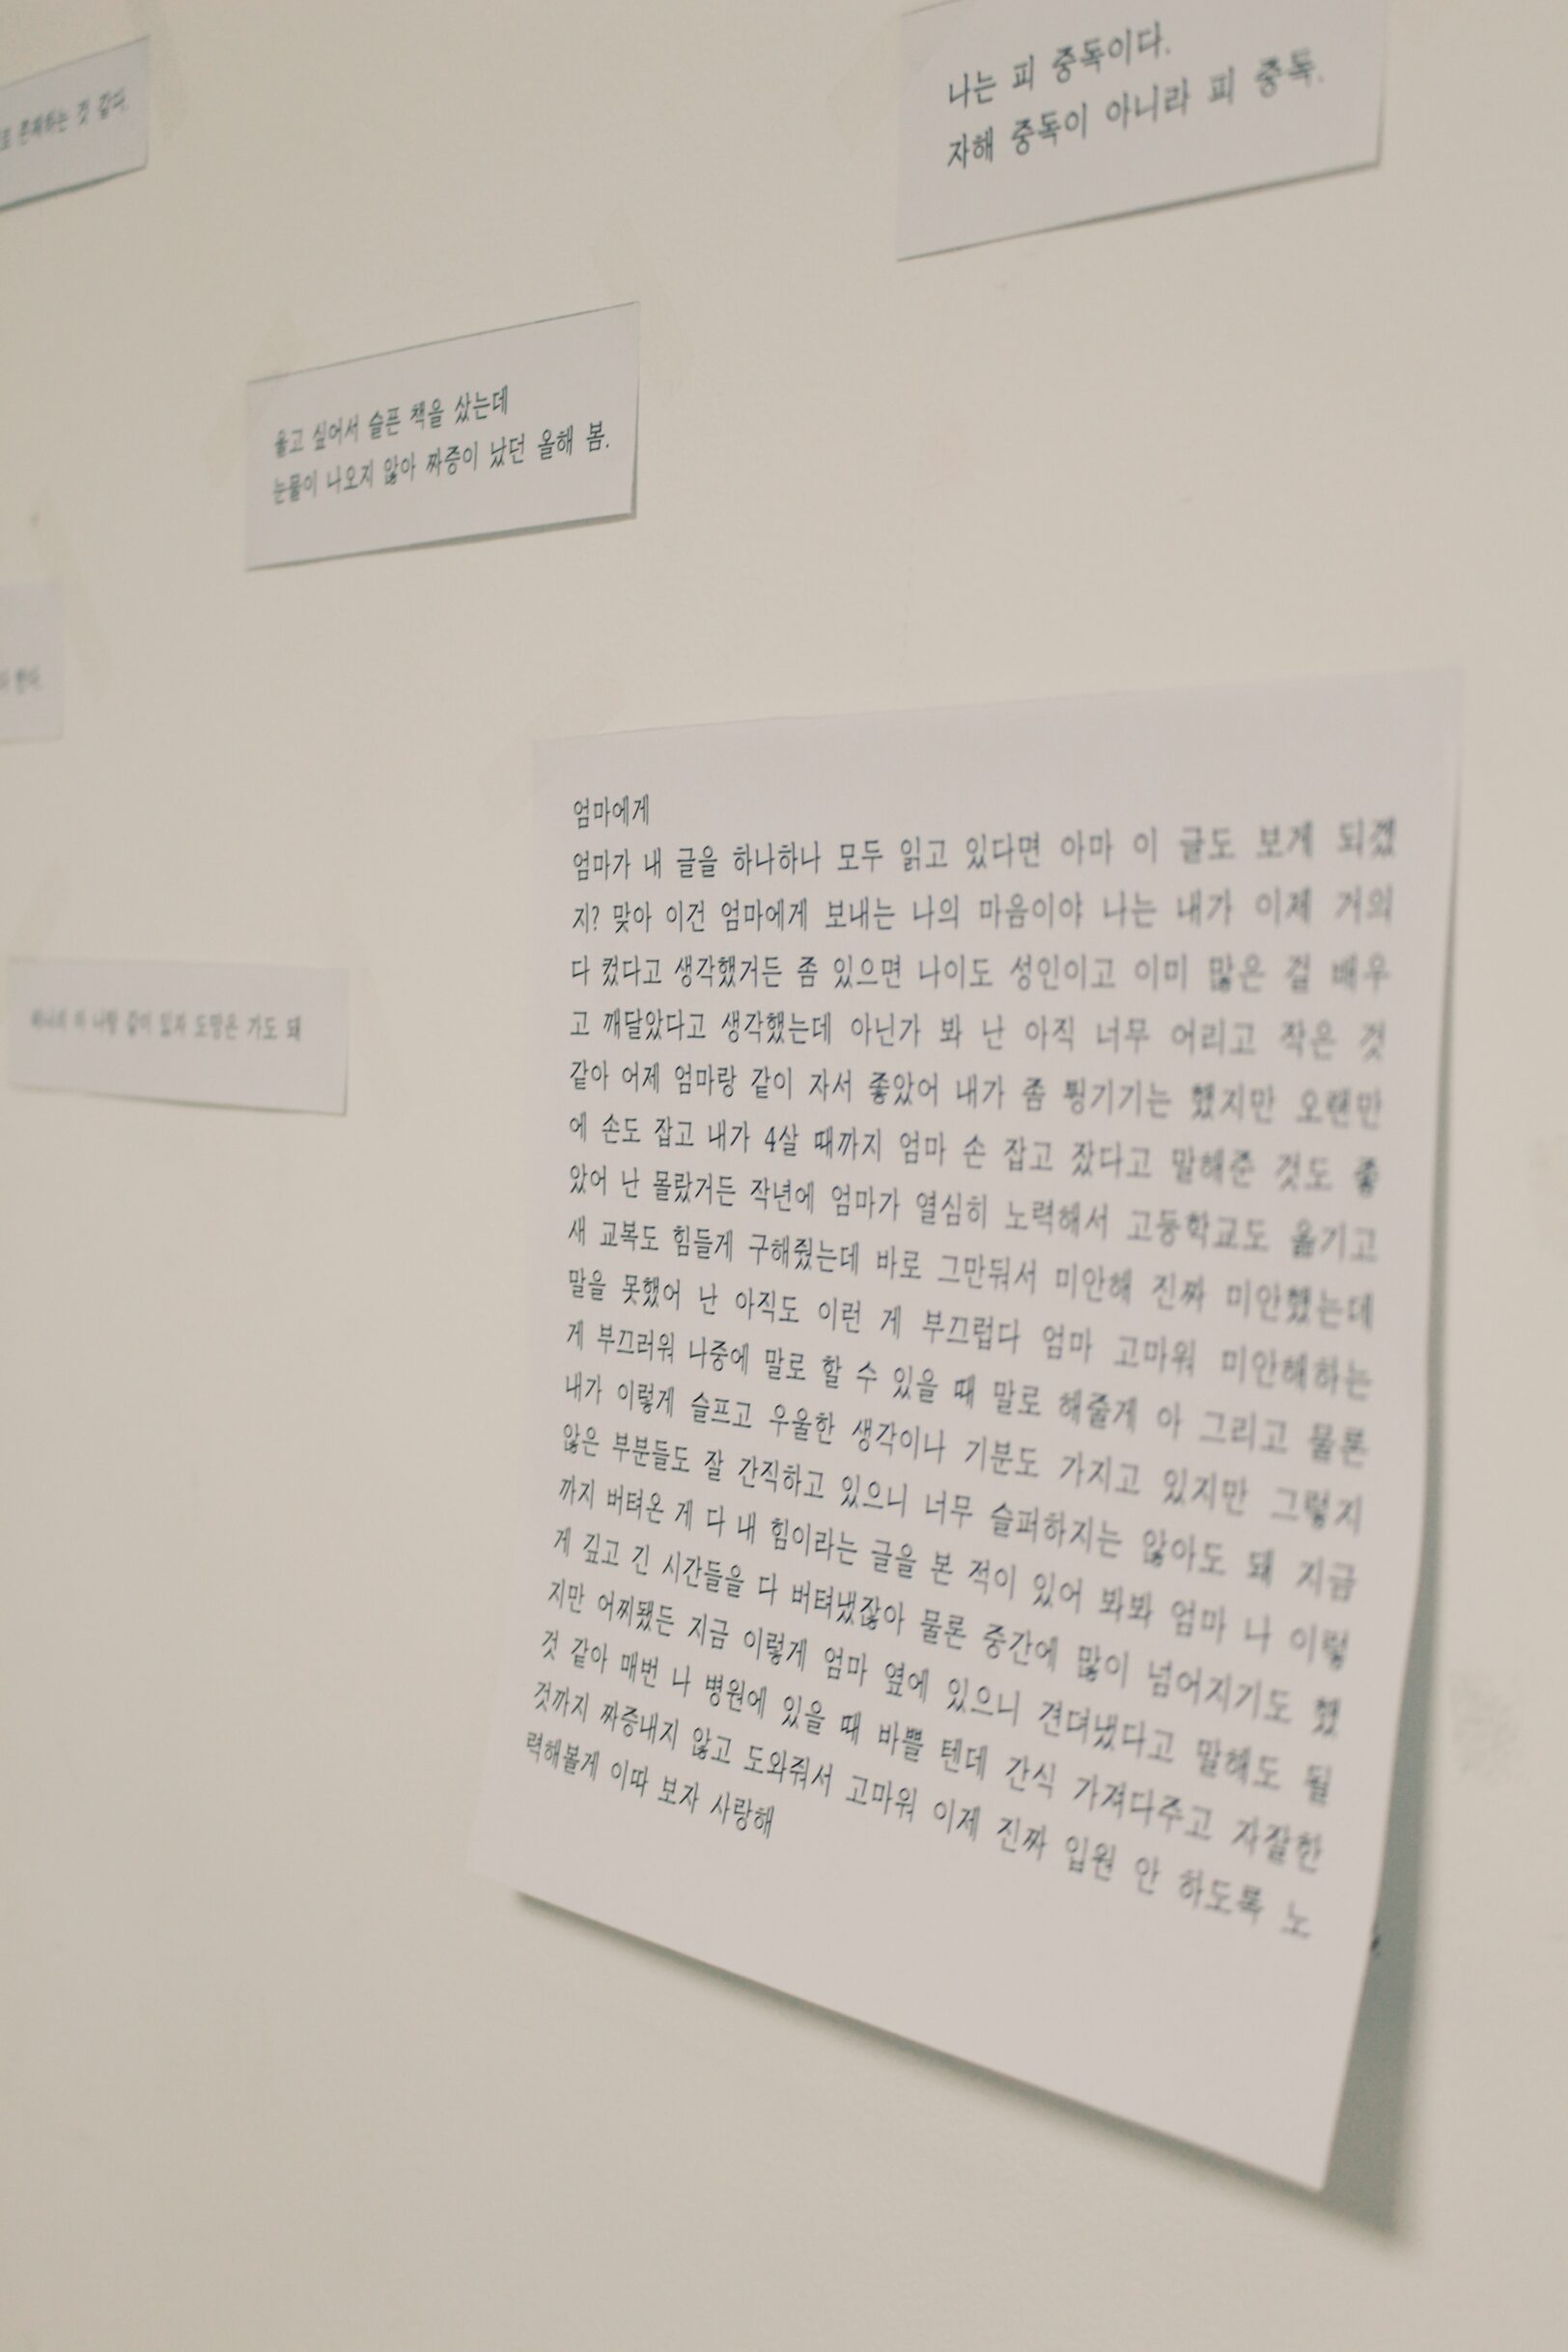 존재하는 것 같다.
나는 피 중독이다.
자해 중독이 아니라 피 중독.
울고 싶어서 슬픈 책을 샀는데
눈물이 나오지 않아 짜증이 났던 올해 봄.
한다.
나랑 같이 있자 도망은 가도 돼
엄마에게
엄마가 내 글을 하나하나 모두 읽고 있다면 아마 이 글도 보게 되겠
지? 맞아 이건 엄마에게 보내는 나의 마음이야 나는 내가 이제 거의
다 컸다고 생각했거든 좀 있으면 나이도 성인이고 이미 많은 걸 배우
고 깨달았다고 생각했는데 아닌가 봐 난 아직 너무 어리고 작은 것
같아 어제 엄마랑 같이 자서 좋았어 내가 좀 튕기기는 했지만 오랜만
에 손도 잡고 내가 4살 때까지 엄마 손 잡고 잤다고 말해준 것도 좋
았어 난 몰랐거든 작년에 엄마가 열심히 노력해서 고등학교도 옮기고
새 교복도 힘들게 구해줬는데 바로 그만둬서 미안해 진짜 미안했는데
말을 못했어 난 아직도 이런 게 부끄럽다 엄마 고마워 미안해하는
게 부끄러워 나중에 말로 할 수 있을 때 말로 해줄게 아 그리고 물론
내가 이렇게 슬프고 우울한 생각이나 기분도 가지고 있지만 그렇지
않은 부분들도 잘 간직하고 있으니 너무 슬퍼하지는 않아도 돼 지금
까지 버텨온 게 다 내 힘이라는 글을 본 적이 있어 봐봐 엄마 나 이렇
게 깊고 긴 시간들을 다 버텨냈잖아 물론 중간에 많이 넘어지기도 했
지만 어찌됐든 지금 이렇게 엄마 옆에 있으니 견뎌냈다고 말해도 될
것 같아 매번 나 병원에 있을 때 바쁠 텐데 간식 가져다주고 자잘한
것까지 짜증내지 않고 도와줘서 고마워 이제 진짜 입원 안 하도록 노
력해볼게 이따 보자 사랑해